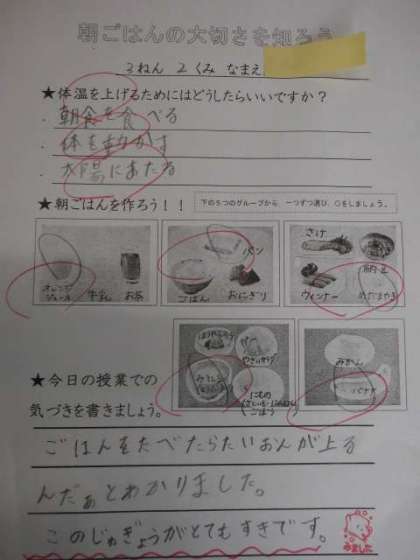 朝ごはんの大切さを知ろう
3ねん 2くみ なまえ
★体温を上げるためにはどうしたらいいですか？
・朝食を食べる
・体を動かす
・太陽にあたる
★朝ごはんを作ろう！！
下の5つのグループから 一つずつ選び、○をしましょう。
オレンジジュース 牛乳 お茶
パン
ごはん おにぎり
さけ
ウィンナー めだまやき
みかん
バナナ
★今日の授業での
気づきを書きましょう。
ごはんをたべたらたいおんが上る
んだぁとわかりました。
このじゅぎょうがとてもすきです。
みました